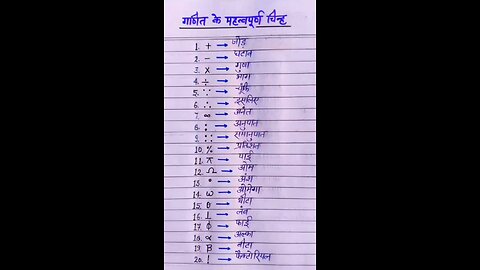 गणित के महत्वपूर्ण चिन्ह
1. + → जोड़
2. - → घटाव
3. × → गुणा
4. ÷ → भाग
5. ∵ → चूँकि
6. ∴ → इसलिए
7. ∞ → अनंत
8. : → अनुपात
9. :: → समानुपात
10. % → प्रतिशत
11. π → पाई
12. Ω → ओम
13. ° → अंश
14. ω → ओमेगा
15. θ → थीटा
16. ⊥ → लंब
17. ϕ → फाई
18. α → अल्फा
19. β → बीटा
20. ! → फैक्टोरियल